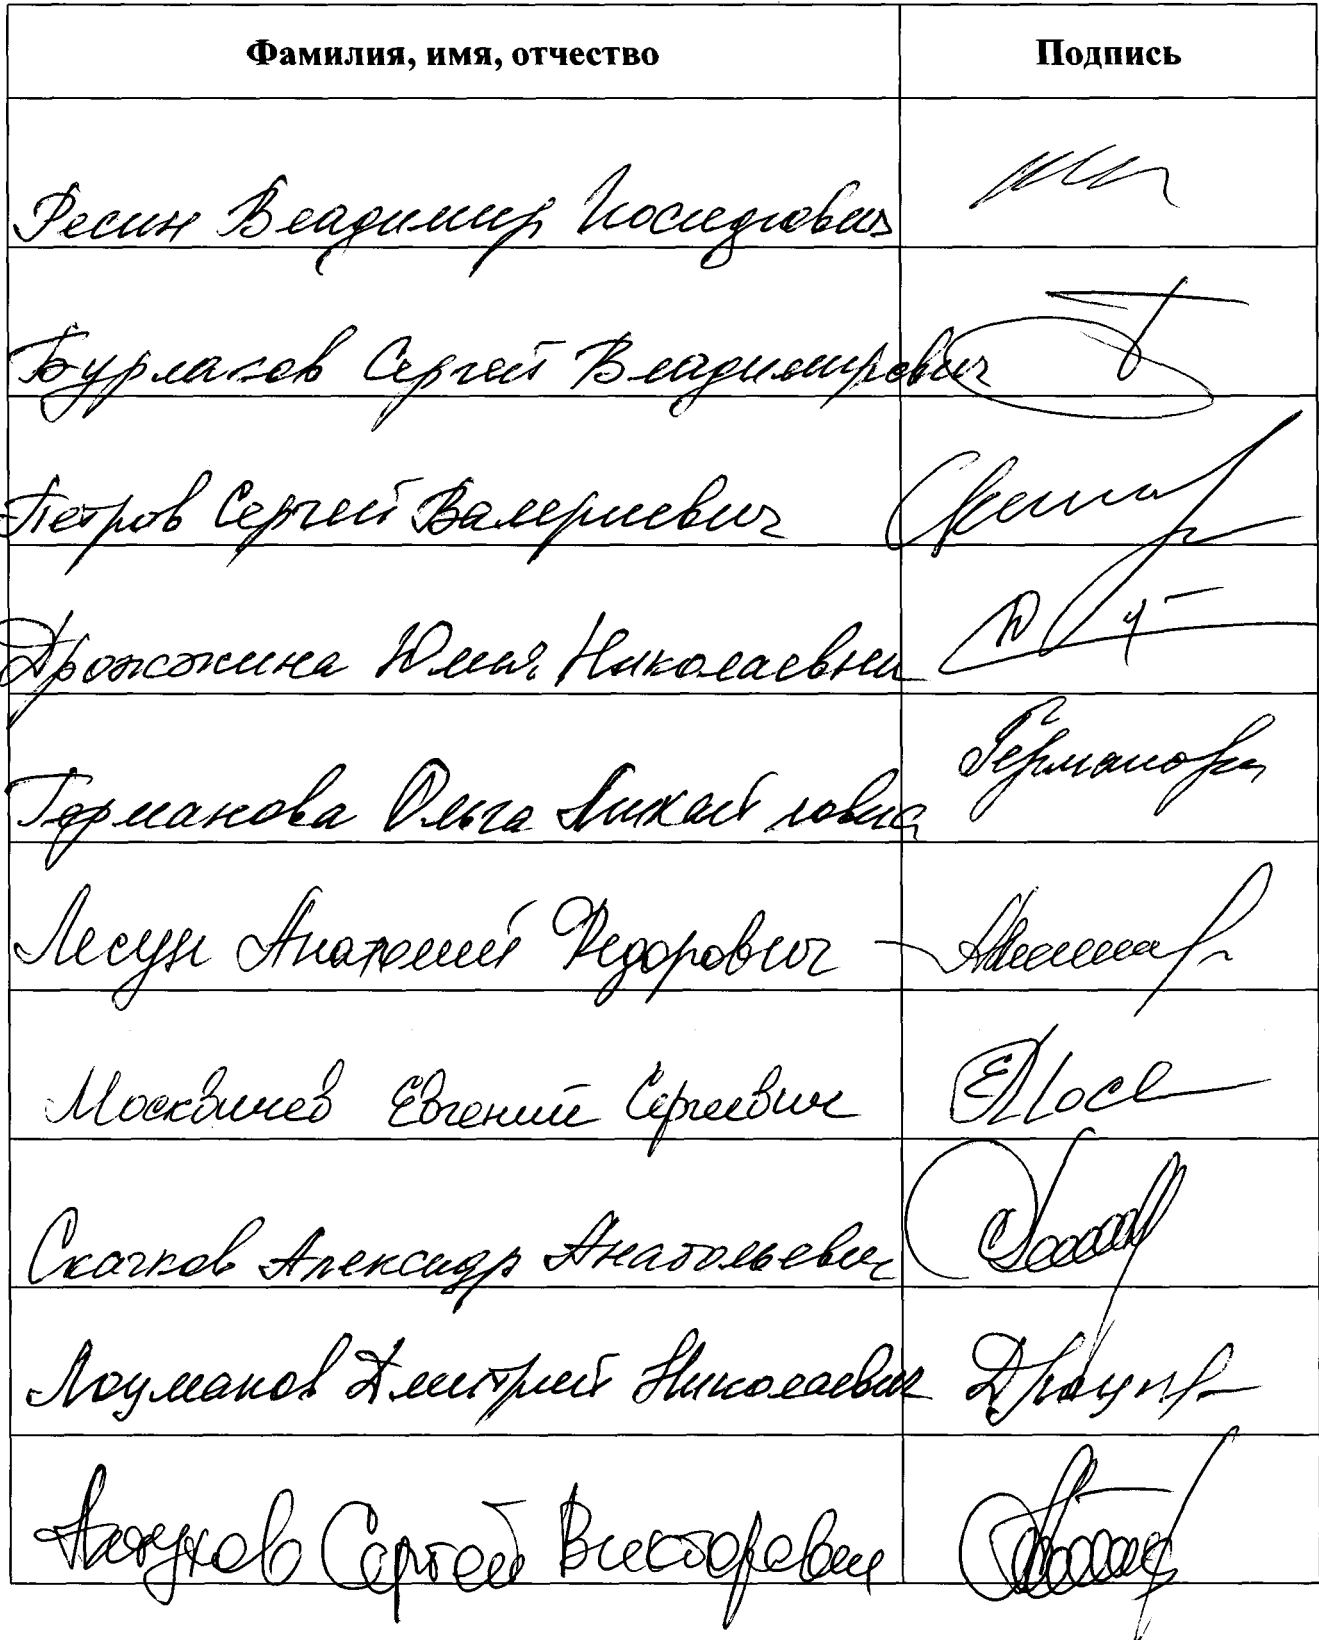 Фамилия, имя, отчество Подпись
Ресин Владимир Иосифович
Бурлаков Сергей Владимирович
Петров Сергей Валериевич
Дрожжина Юлия Николаевна
Германова Ольга Михайловна Германова
Лесун Анатолий Федорович
Москвичев Евгений Сергеевич ЕМосв
Скачков Александр Анатольевич
Лоцманов Дмитрий Николаевич
Алтухов Сергей Викторович